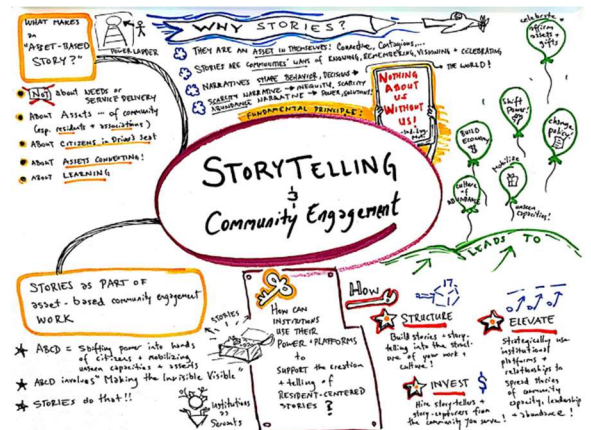 WHAT MAKES
an
"ASSET-BASED
STORY?"
POWER LADDER
NOT about NEEDS or
SERVICE DELIVERY
ABOUT Assets ... of community
(esp. residents + associations)
ABOUT CITIZENS in Driver's seat
ABOUT ASSETS CONNECTING!
ABOUT LEARNING
WHY STORIES?
THEY ARE AN ASSET IN THEMSELVES! Connective, Contagious,...
STORIES ARE COMMUNITIES' WAYS of KNOWING, REMEMBERING, VISIONING + CELEBRATING
THE WORLD!
NARRATIVES SHAPE BEHAVIOR, DECISIONS
SCARCITY NARRATIVE → INEQUITY, SCARCITY
ABUNDANCE NARRATIVE → POWER, SOLUTIONS!
FUNDAMENTAL PRINCIPLE:
NOTHING
ABOUT
US
WITHOUT
US!
STORYTELLING
&
Community Engagement
celebrate +
affirm
assets +
gifts
Shift
Power!
change
policy!
BUILD
ECONOMY
Mobilize
unseen
capacities!
culture
of
ABUNDANCE
LEADS TO
STORIES AS PART OF
asset-based community engagement
WORK
ABCD = Shifting power into hands
of citizens + mobilizing
unseen capacities + assets
ABCD involves "Making the Invisible Visible"
STORIES do that!!
STORIES
Institutions
as
Servants
HOW CAN
INSTITUTIONS
USE THEIR
POWER + PLATFORMS
to
SUPPORT the CREATION
+ telling of
RESIDENT-CENTERED
STORIES?
How
STRUCTURE
Build stories + story-
telling into the struct-
ure of your work +
culture!
INVEST $
Hire storytellers +
story-capturers from
the community you serve!
ELEVATE
Strategically use
institutional
platforms +
relationships to
spread stories
of community
capacity, leadership
+ abundance!